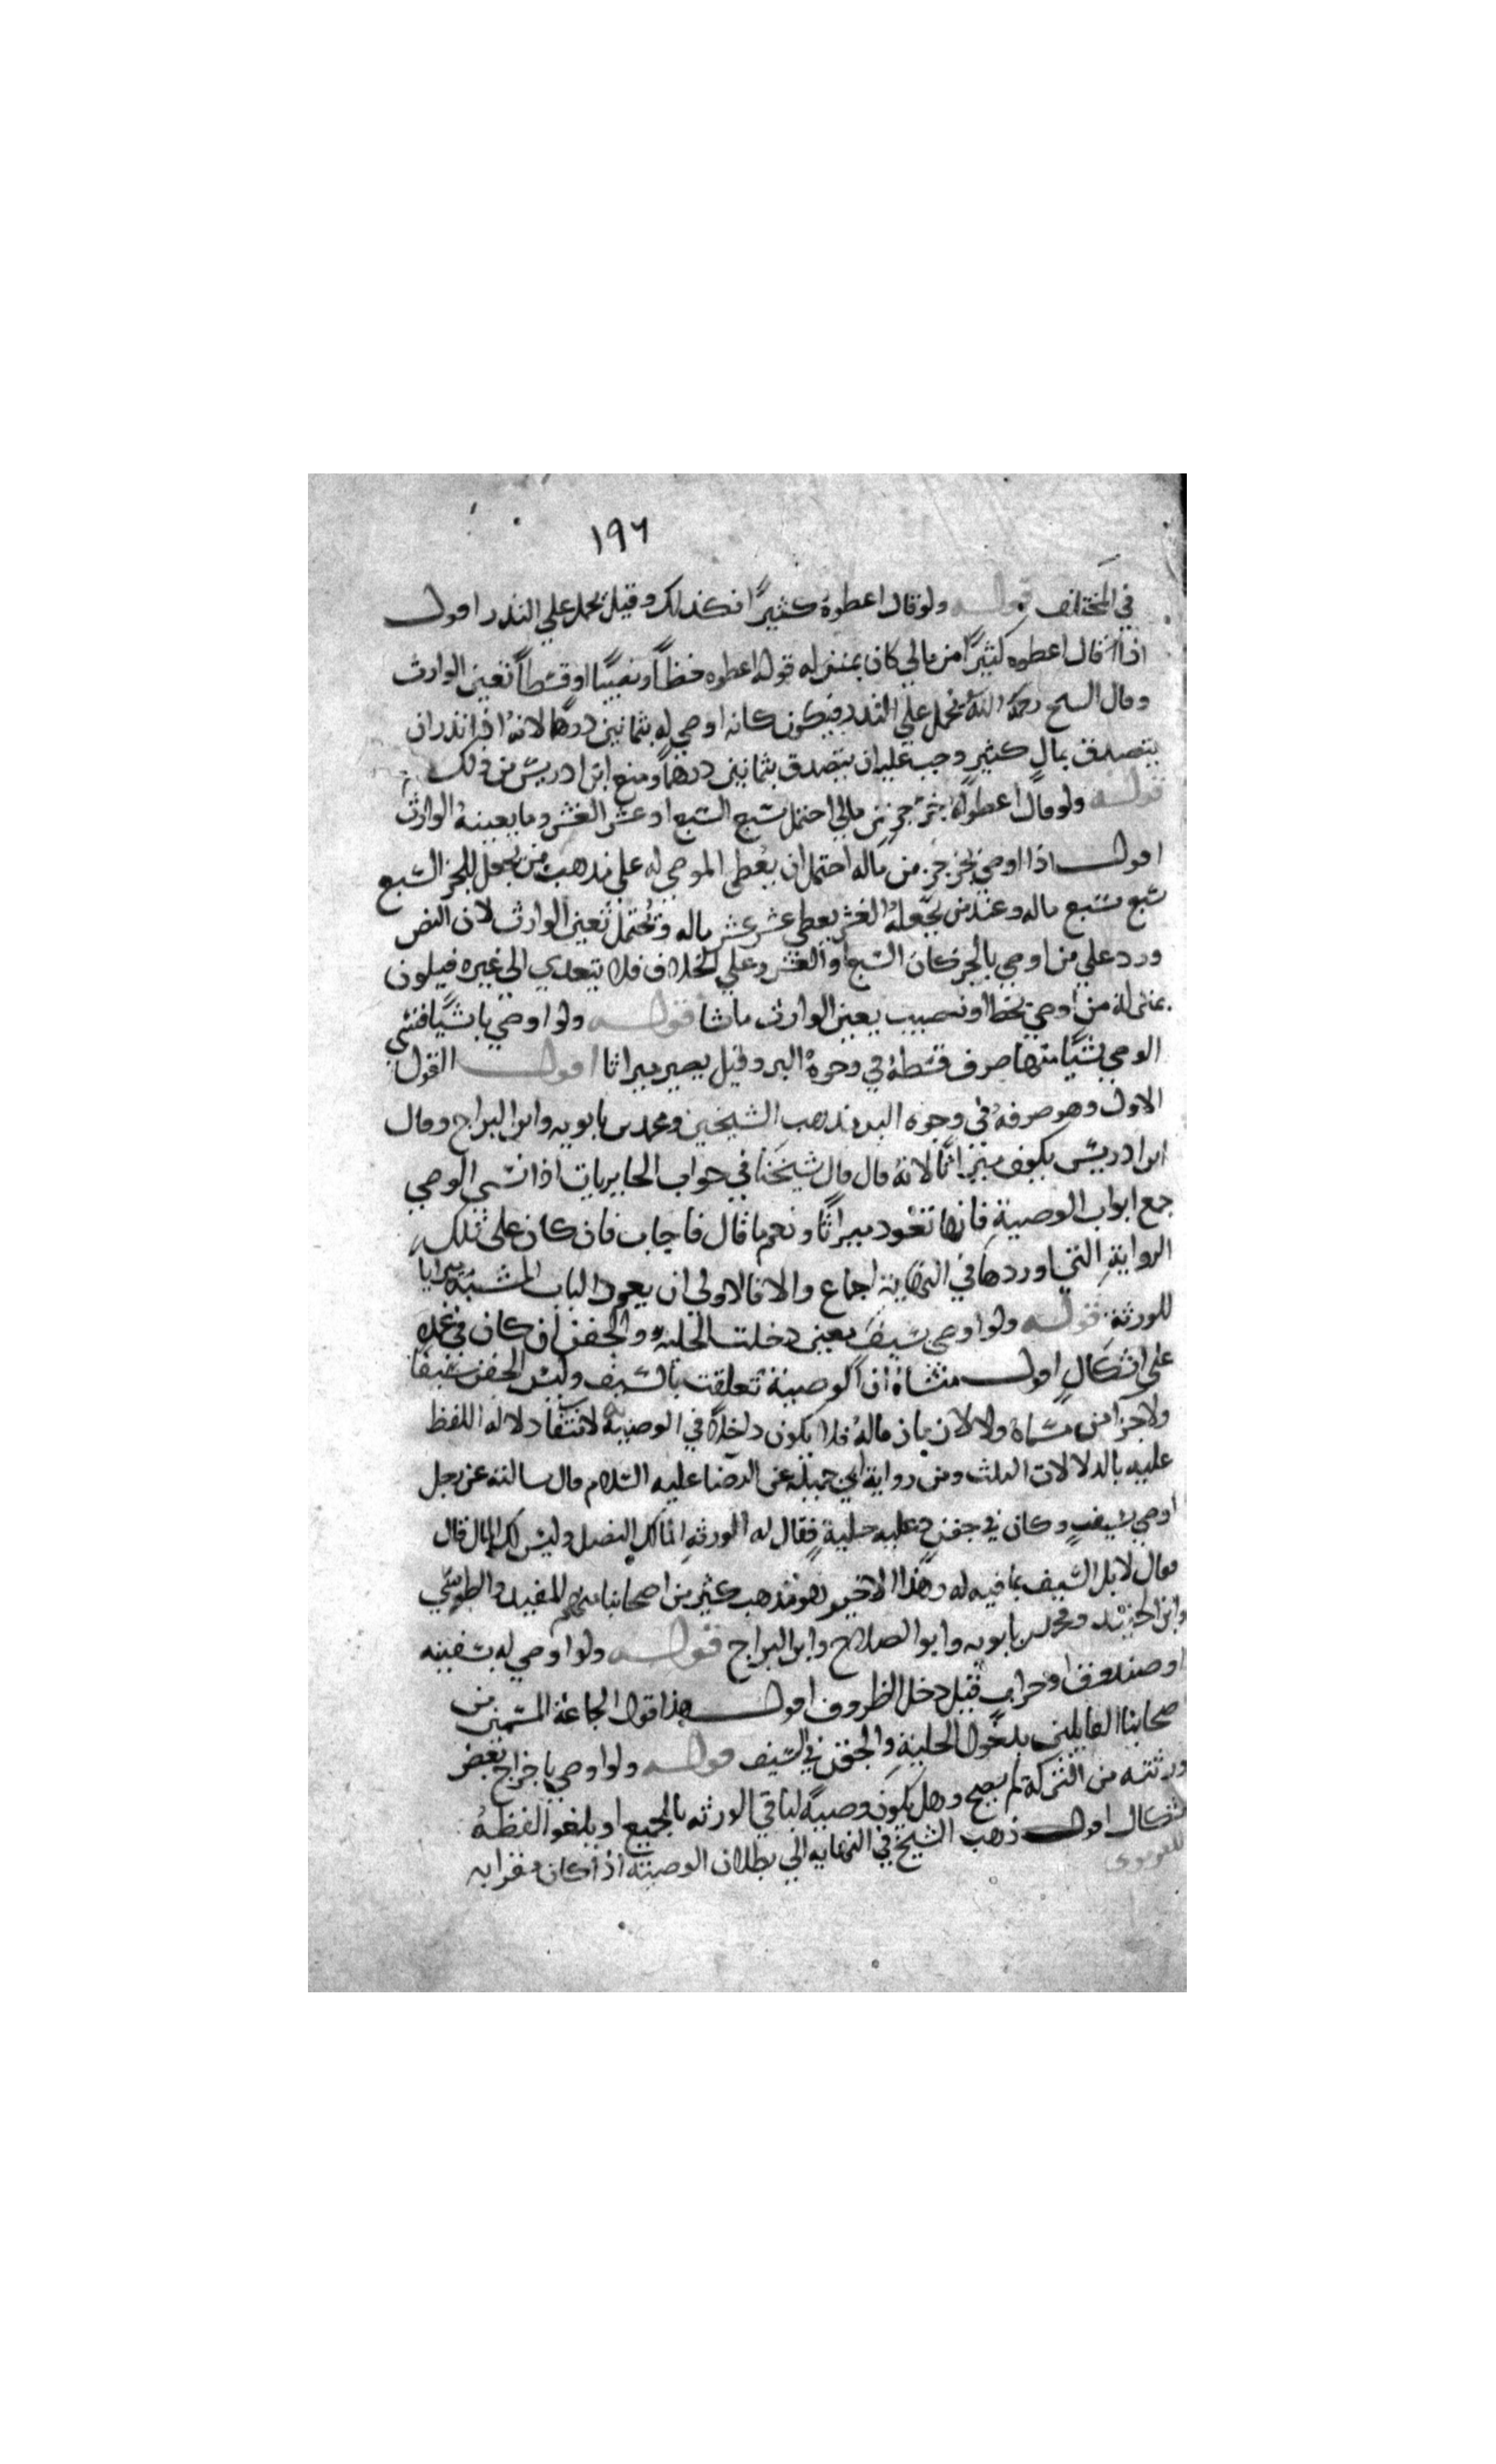 ١٩٦
في المختلف قوله ولو قال اعطوه كثيرًا فكذلك وقيل يحمل علي النذر اقول
اذا قال اعطوه كثيرًا من مالي كان بمنزله قوله اعطوه حظاً ونصيبًا او قسطاً تعين الوارث
وقال السح رحمه الله يحمل علي النذر فيكون كانه اوصي له بثمانين درهما لانه اذا نذر ان
يتصدق بمالٍ كثيرٍ وجب عليه ان يتصدق بثمانين درهماً ومنع ابن ادريس من ذلك
قوله ولو قال اعطوه جزء جزء من مالي احتمل سبع السبع او عشر العشر وما يعينه الوارث
اقول اذا اوصي بجزء جزء من ماله احتمل ان يعطي الموصي له علي مذهب من يجعل الجز السبع
سبع سبع ماله وعند من يجعله العشر يعطي عشر عشر ماله ويحتمل تعين الوارث لان النص
ورد علي من اوصي بالجز كان السبع او العشر وعلي الخلاف فلا يتعدي الي غيره فيكون
بمنزلة من اوصي بحظ او نصيب يعين الوارث ما شا قوله ولو اوصي باشيا فنسي
الوصي شيًا منها صرف قسطه في وجوه البر وقيل يصير ميراثا اقول القول
الاول وهو صرفه في وجوه البر مذهب الشيخين ومحمد بن بابويه وابن البراج وقال
ابن ادريس يكون ميراثًا لانه قال قال شيخنا في جواب الحايريات اذا نسي الوصي
جمع ابواب الوصية فانها تعود ميراثًا ونعم ما قال فاجاب فان كان علي تلك
الرواية التي اوردها في النهاية اجماع والا فالاولي ان يعود الباب المشتبه ميراثا
للورثة قوله ولو اوصي بسيف معين دخلت الحليه والجفن ان كان في غمده
علي اشكالٍ اقول منشاه ان الوصية تعلقت بالسيف وليس الجفن سيفا
ولا جزا من مسماه ولا لازما له فلا يكون داخلاً في الوصية لانتفا دلاله اللفظ
عليه بالدلالات الثلث ومن رواية ابي جميله عن الرضا عليه السلام قال سالته عن رجل
اوصي بسيفٍ وكان في جفن وعليه حلية فقال له الورثه انما لك النصل وليس لك المال قال
فقال لا بل السيف بما فيه له وهذا الاخير هو مذهب كثير من اصحابنا منهم المفيد والطوسي
وابن الجنيد ومحمد بن بابويه وابو الصلاح وابن البراج قوله ولو اوصي له بسفينه
او صندوق او جراب قيل دخل المظروف اقول هذا قول الجماعة المسمين من
صحابنا القايلين بدخول الحلية والجفن في السيف قوله ولو اوصي باخراج بعض
ورثته من التركة لم يصح وهل يكون وصية لباقي الورثه بالجميع او يلغو اللفظ
اشكال اقول ذهب الشيخ في النهايه الي بطلان الوصية اذا كان مقرا به